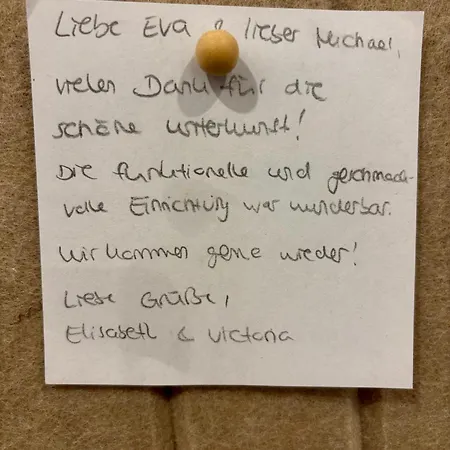 Liebe Eva & lieber Michael,
vielen Dank für die
schöne Unterkunft!
Die funktionelle und geschmack-
volle Einrichtung war wunderbar.
Wir kommen gerne wieder!
Liebe Grüße,
Elisabeth & Victoria